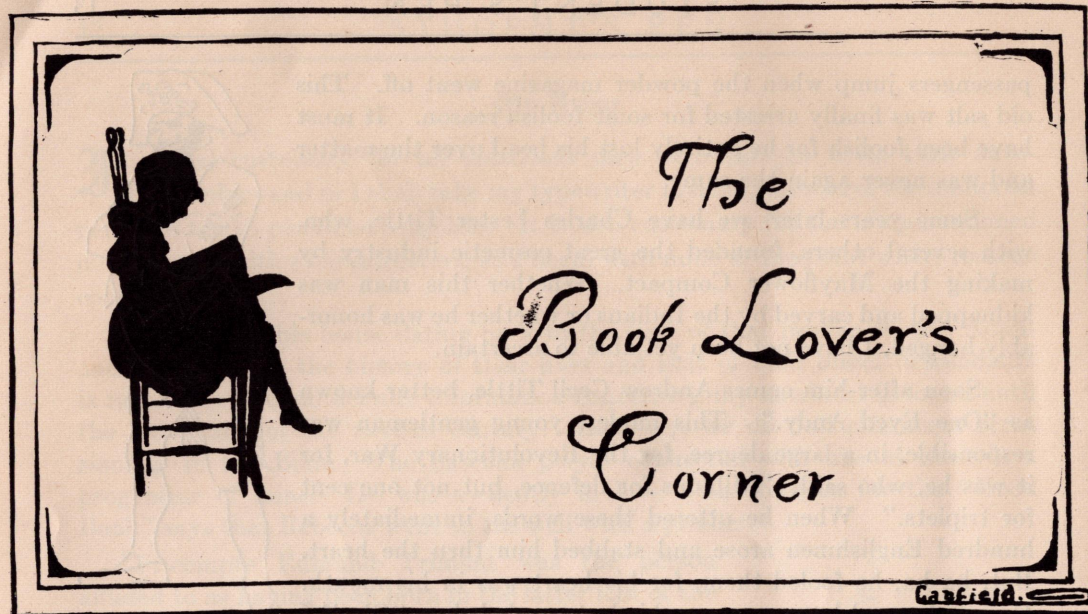 The
Book Lover's
Corner
Canfield.